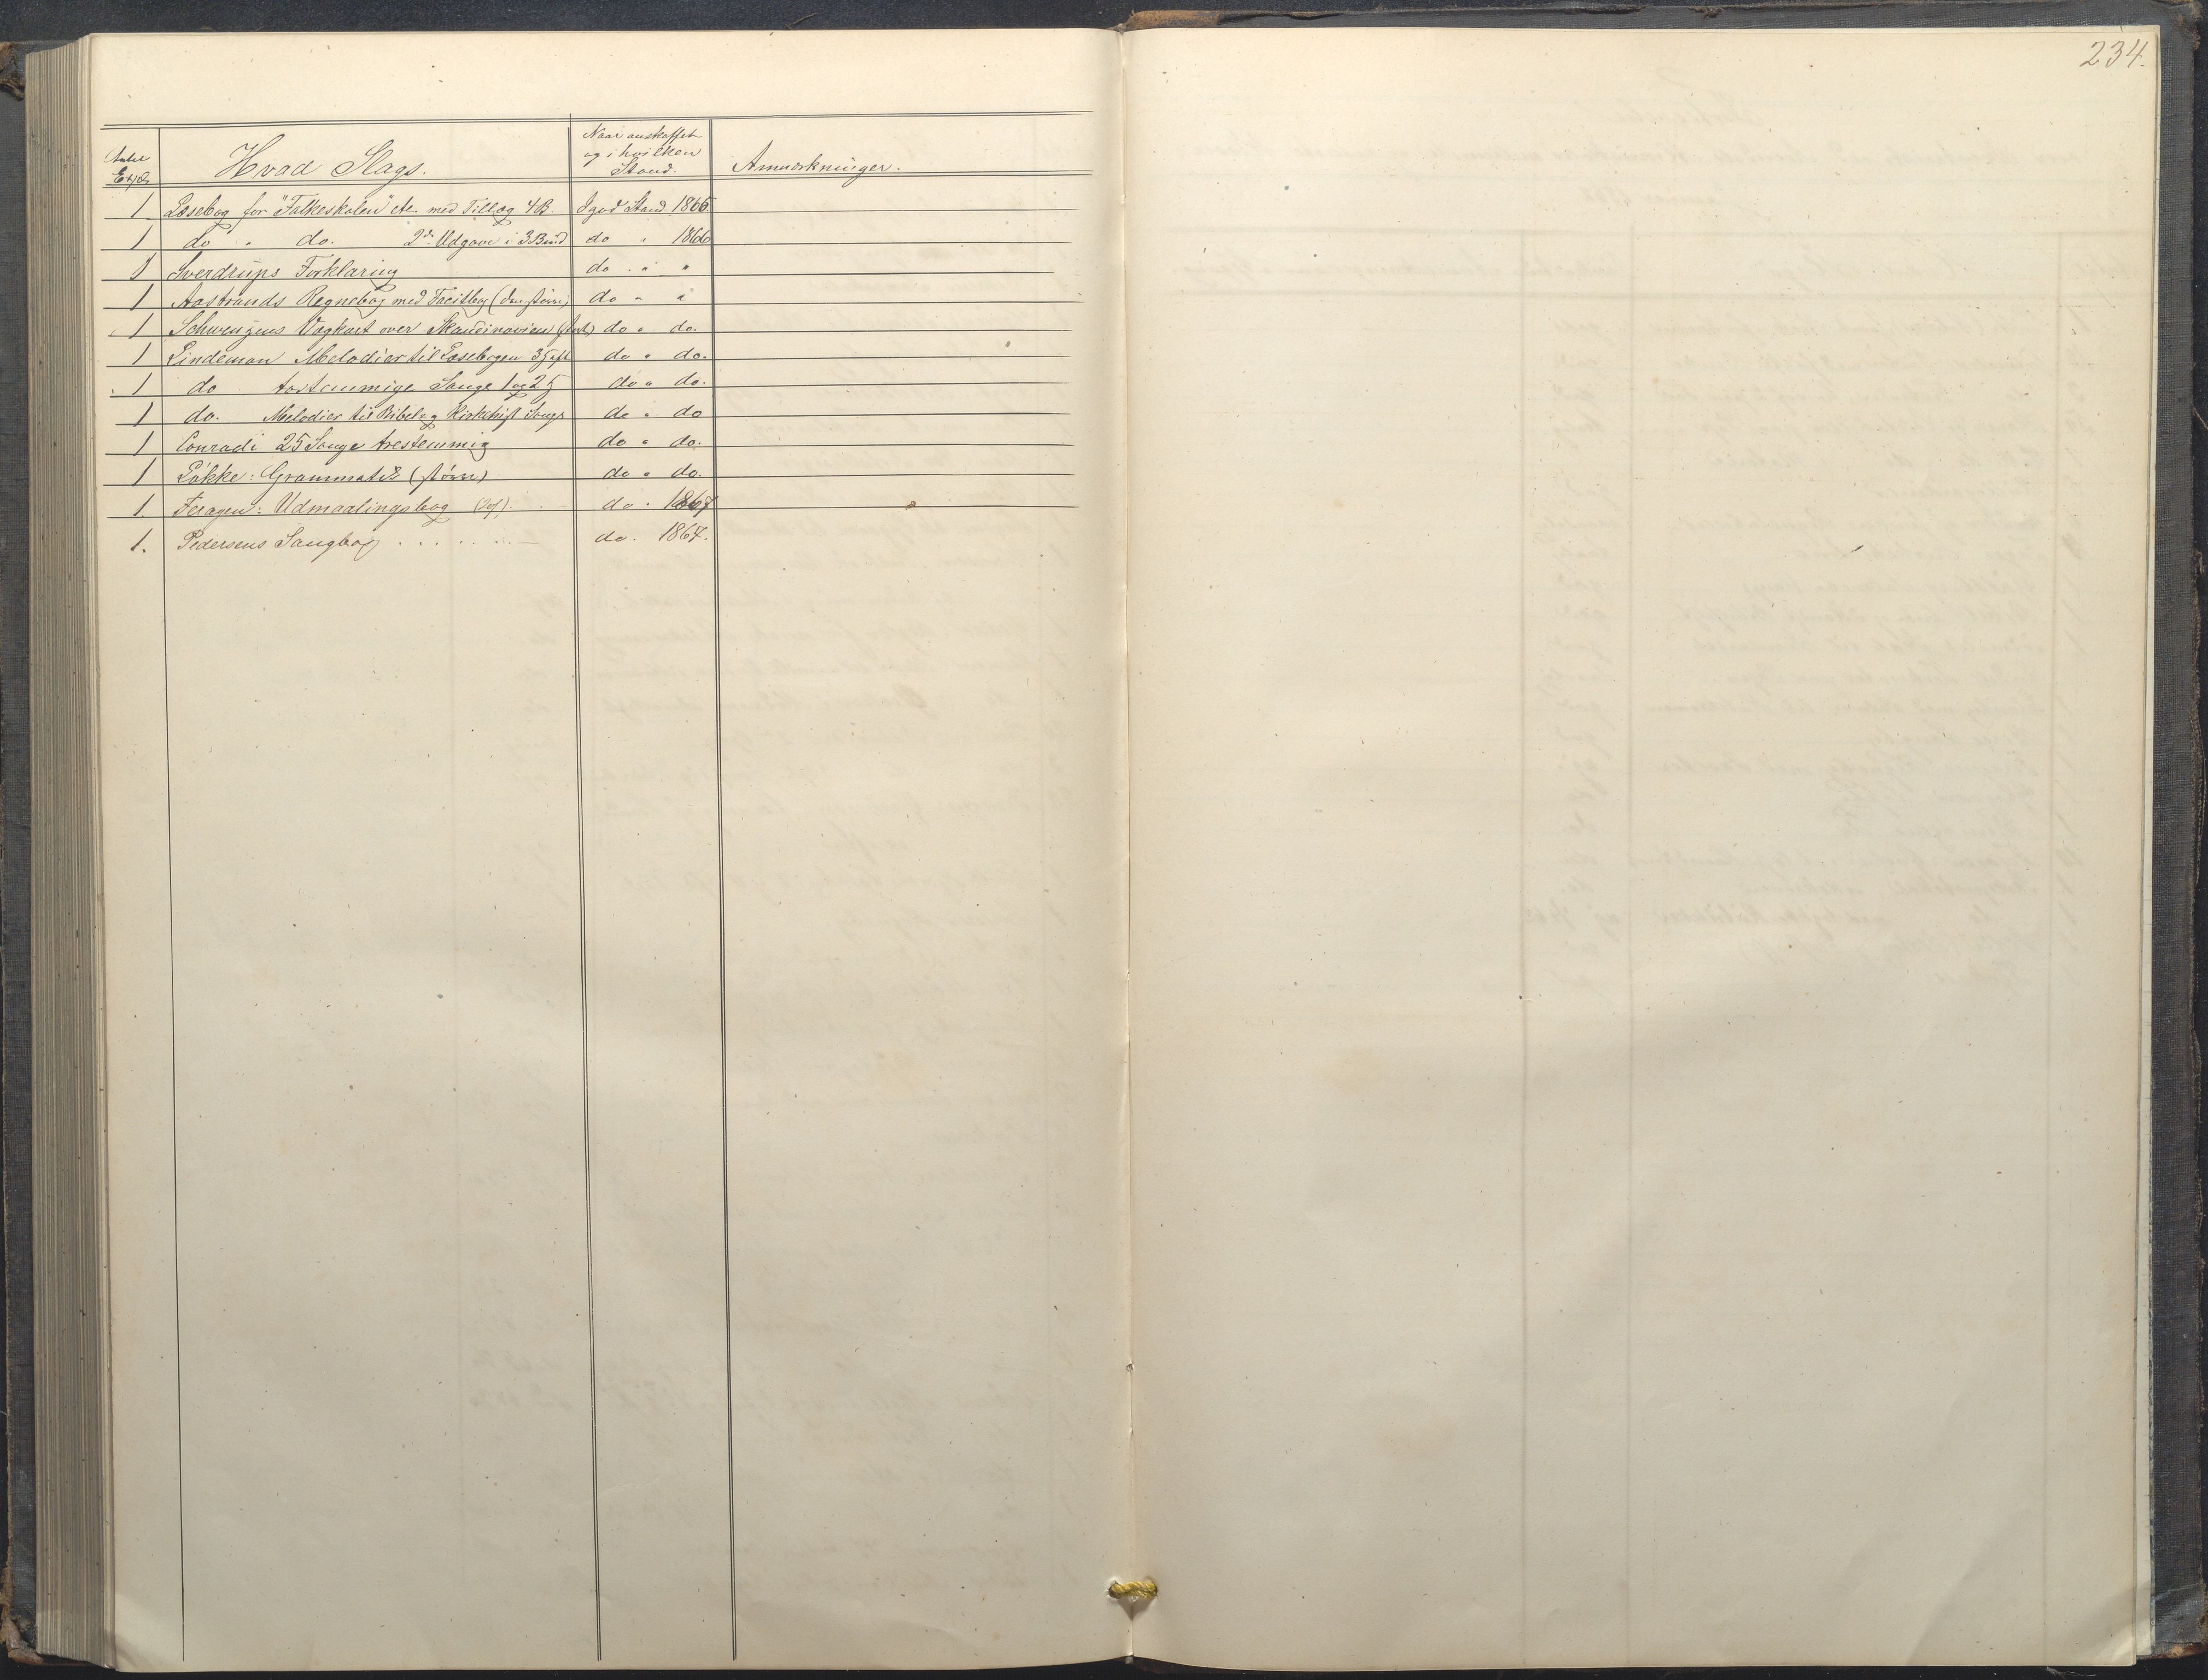 234.
Antal Expl.
Hvad Slags.
Naar anskaffet og i hvilken Stand.
Anmærkninger.
1 Læsebog for "Folkeskolen" etc. med Tillæg 4 B. I god Stand 1866.
1 do " do. 2den Udgave i 3 Bind do " 1866
1 Sverdrups Forklaring do. " "
1 Aastrands Regnebog med Facitbog (den større) do " "
1 Schwenzens Vægkart over Skandinavien do " do.
1 Lindeman Melodier til Læsebogen 3 Hft do " do.
1 do tostemmige Sange 1 og 2 H do " do.
1 do. Melodier til Bibel og Kirkehist Sange do " do
1 Conradi 25 Sange trestemmig do " do.
1 Løkke: Grammatik (større) do " do.
1. Feragen: Udmaalingsbog do " 1867
1. Pedersens Sangbog . . . . . . — do. 1867.